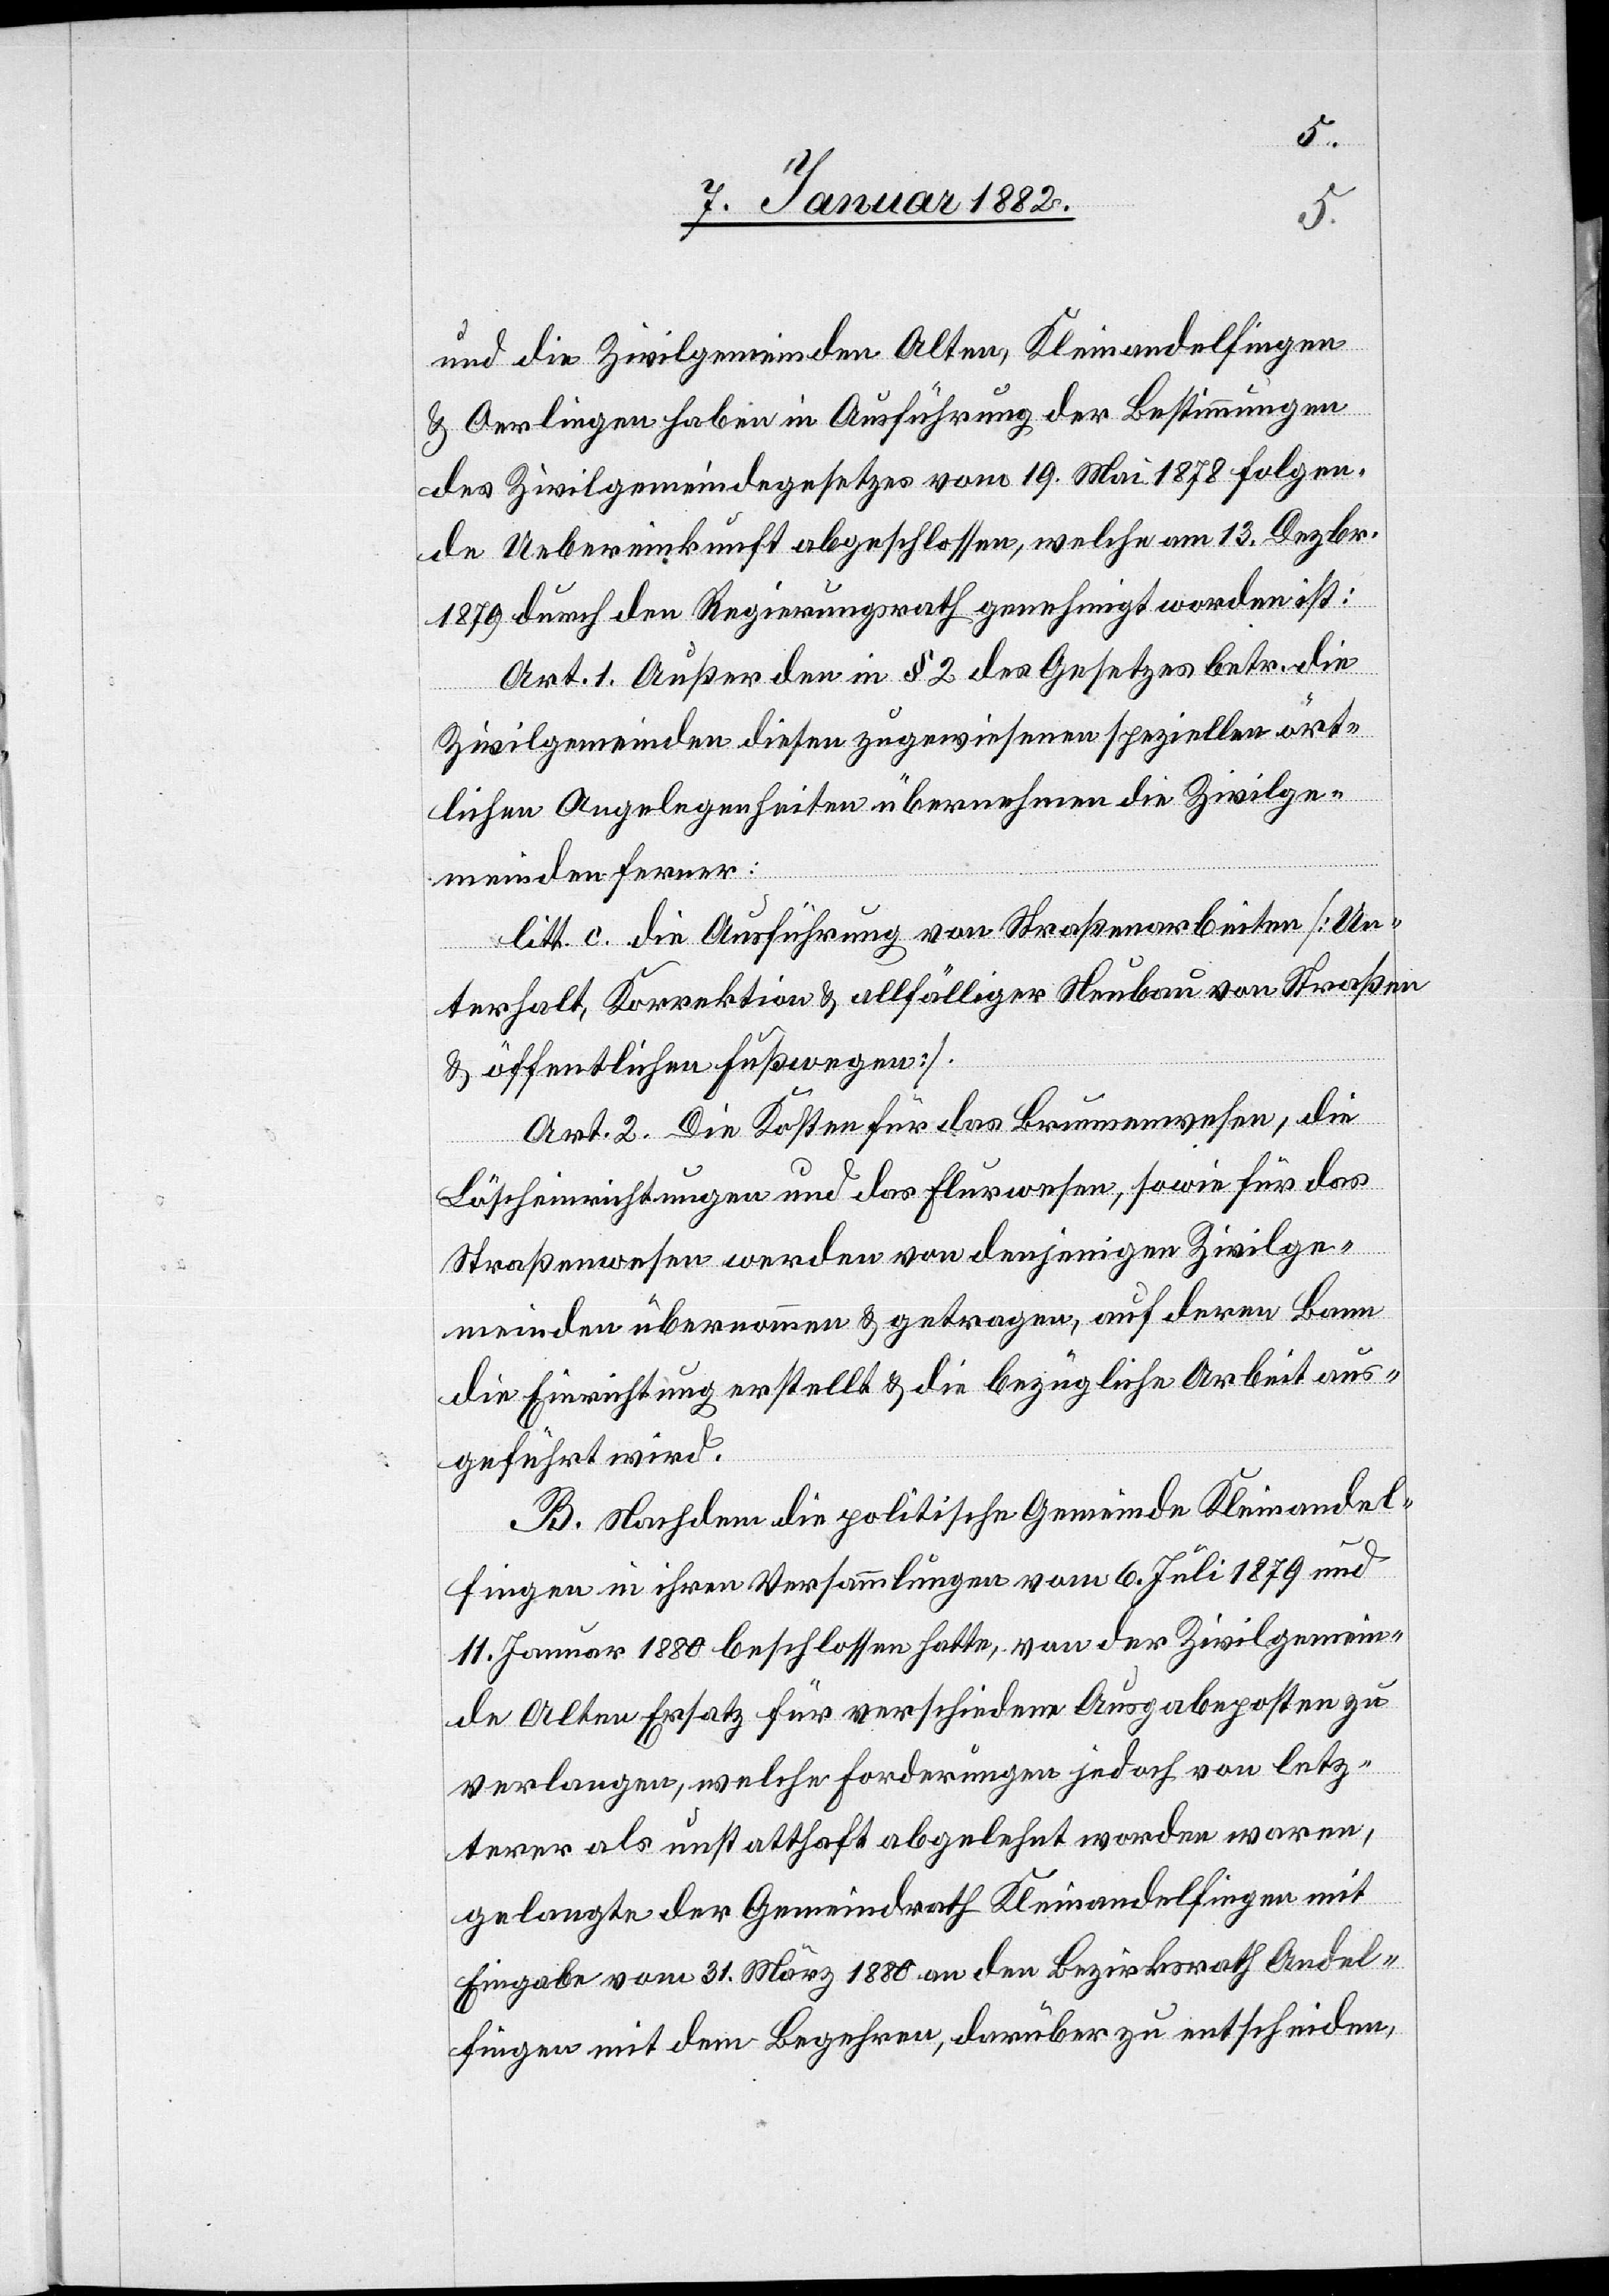 5.
7. Januar 1882.
5.
und die Zivilgemeinden Alten, Kleinandelfingen
& Oerlingen haben in Ausführung der Bestimmungen
des Zivilgemeindegesetzes vom 19. Mai 1878 folgen-
de Uebereinkunft abgeschlossen, welche am 13. Dezbr.
1879 durch den Regierungsrath genehmigt worden ist:
Art. 1. Außer den in § 2 des Gesetzes betr. die
Zivilgemeinden diesen zugewiesenen speziellen ört-
lichen Angelegenheiten übernehmen die Zivilge-
meinden ferner:
litt. c. die Ausführung von Straßenarbeiten /: Un-
terhalt, Korrektion & allfälliger Neubau von Straßen
& öffentlichen Fußwegen :/.
Art. 2. Die Kosten für das Brunnenwesen, die
Löscheinrichtungen und das Flurwesen, sowie für das
Straßenwesen werden von denjenigen Zivilge-
meinden übernommen & getragen, auf deren Bann
die Einrichtung erstellt & die bezügliche Arbeit aus-
geführt wird.
B. Nachdem die politische Gemeinde Kleinandel-
fingen in ihren Versammlungen vom 6. Juli 1879 und
11. Januar 1880 beschlossen hatte, von der Zivilgemein-
de Alten Ersatz für verschiedene Ausgabeposten zu
verlangen, welche Forderungen jedoch von letz-
terer als unstatthaft abgelehnt worden waren,
gelangte der Gemeindrath Kleinandelfingen mit
Eingabe vom 31. März 1880 an den Bezirksrath Andel-
fingen mit dem Begehren, darüber zu entscheiden,